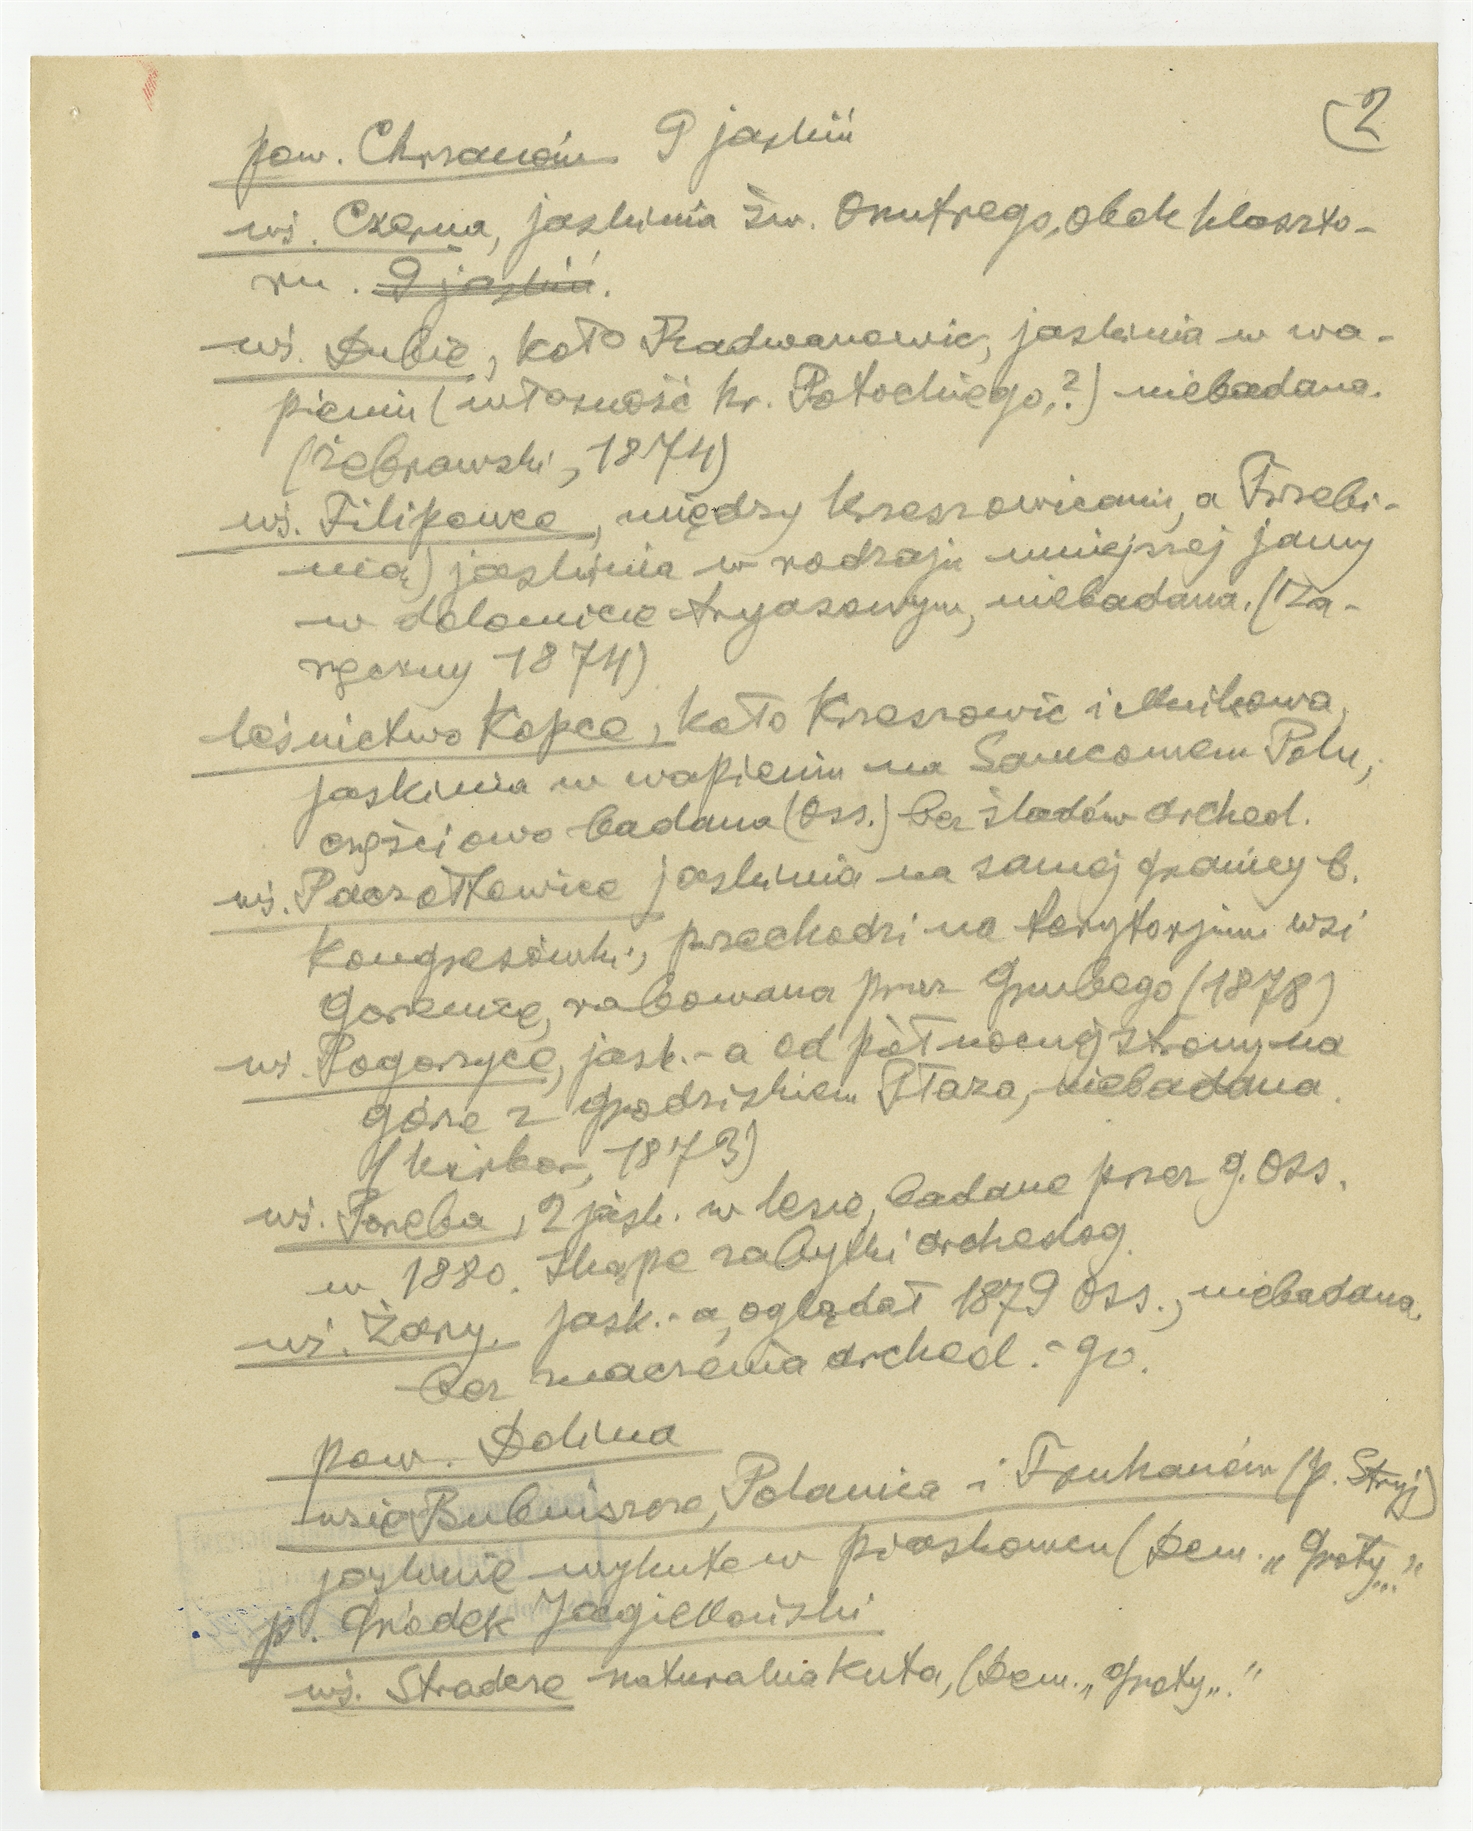 2
pow. Chrzanów 9 jaskiń
wś. Czerna, jaskinia św. Onufrego, obok klaszto-
ru. 9 jaskiń.
wś. Dubie, koło Radwanowic, jaskinia w wa-
pieniu (własność hr. Potockiego,?) niebadana.
(Żebrawski, 1874)
wś. Filipowce, między Krzeszowicami, a Trzebi-
nią) jaskinia w rodzaju mniejszej jamy
w dolomicie tryasowym, niebadana. (Za-
ręczny 1874)
leśnictwo Kopce, koło Krzeszowic i Mnikowa,
jaskinia w wapieniu na Samcowem Polu,
częściowo badana (Oss.) bez śladów archeol.
wś. Paczółtowice jaskinia na samej granicy b.
Kongresówki, przechodzi na terytorjum wsi
Gorenice, rabowana przez Grubego (1878)
wś. Pogorzyce, jask.-a od północnej strony na
górze z grodziskiem Płaza, niebadana.
(Kirkor, 1873)
wś. Poręba, 2 jask. w lesie, badane przez G. Oss.
w 1880. Skąpe zabytki archeolog.
wś. Żary. jask.-a, oglądał 1879 Oss., niebadana,
bez znaczenia archeol.-go.
pow. Dolina
wsie Bubniszcze, Polanica i Truhanów (p. Stryj)
jaskinie wykute w piaskowcu (Dem. „Groty..."
p. Gródek Jagielloński
wś. Stradcze naturalna kuta, (Dem. „Groty„."